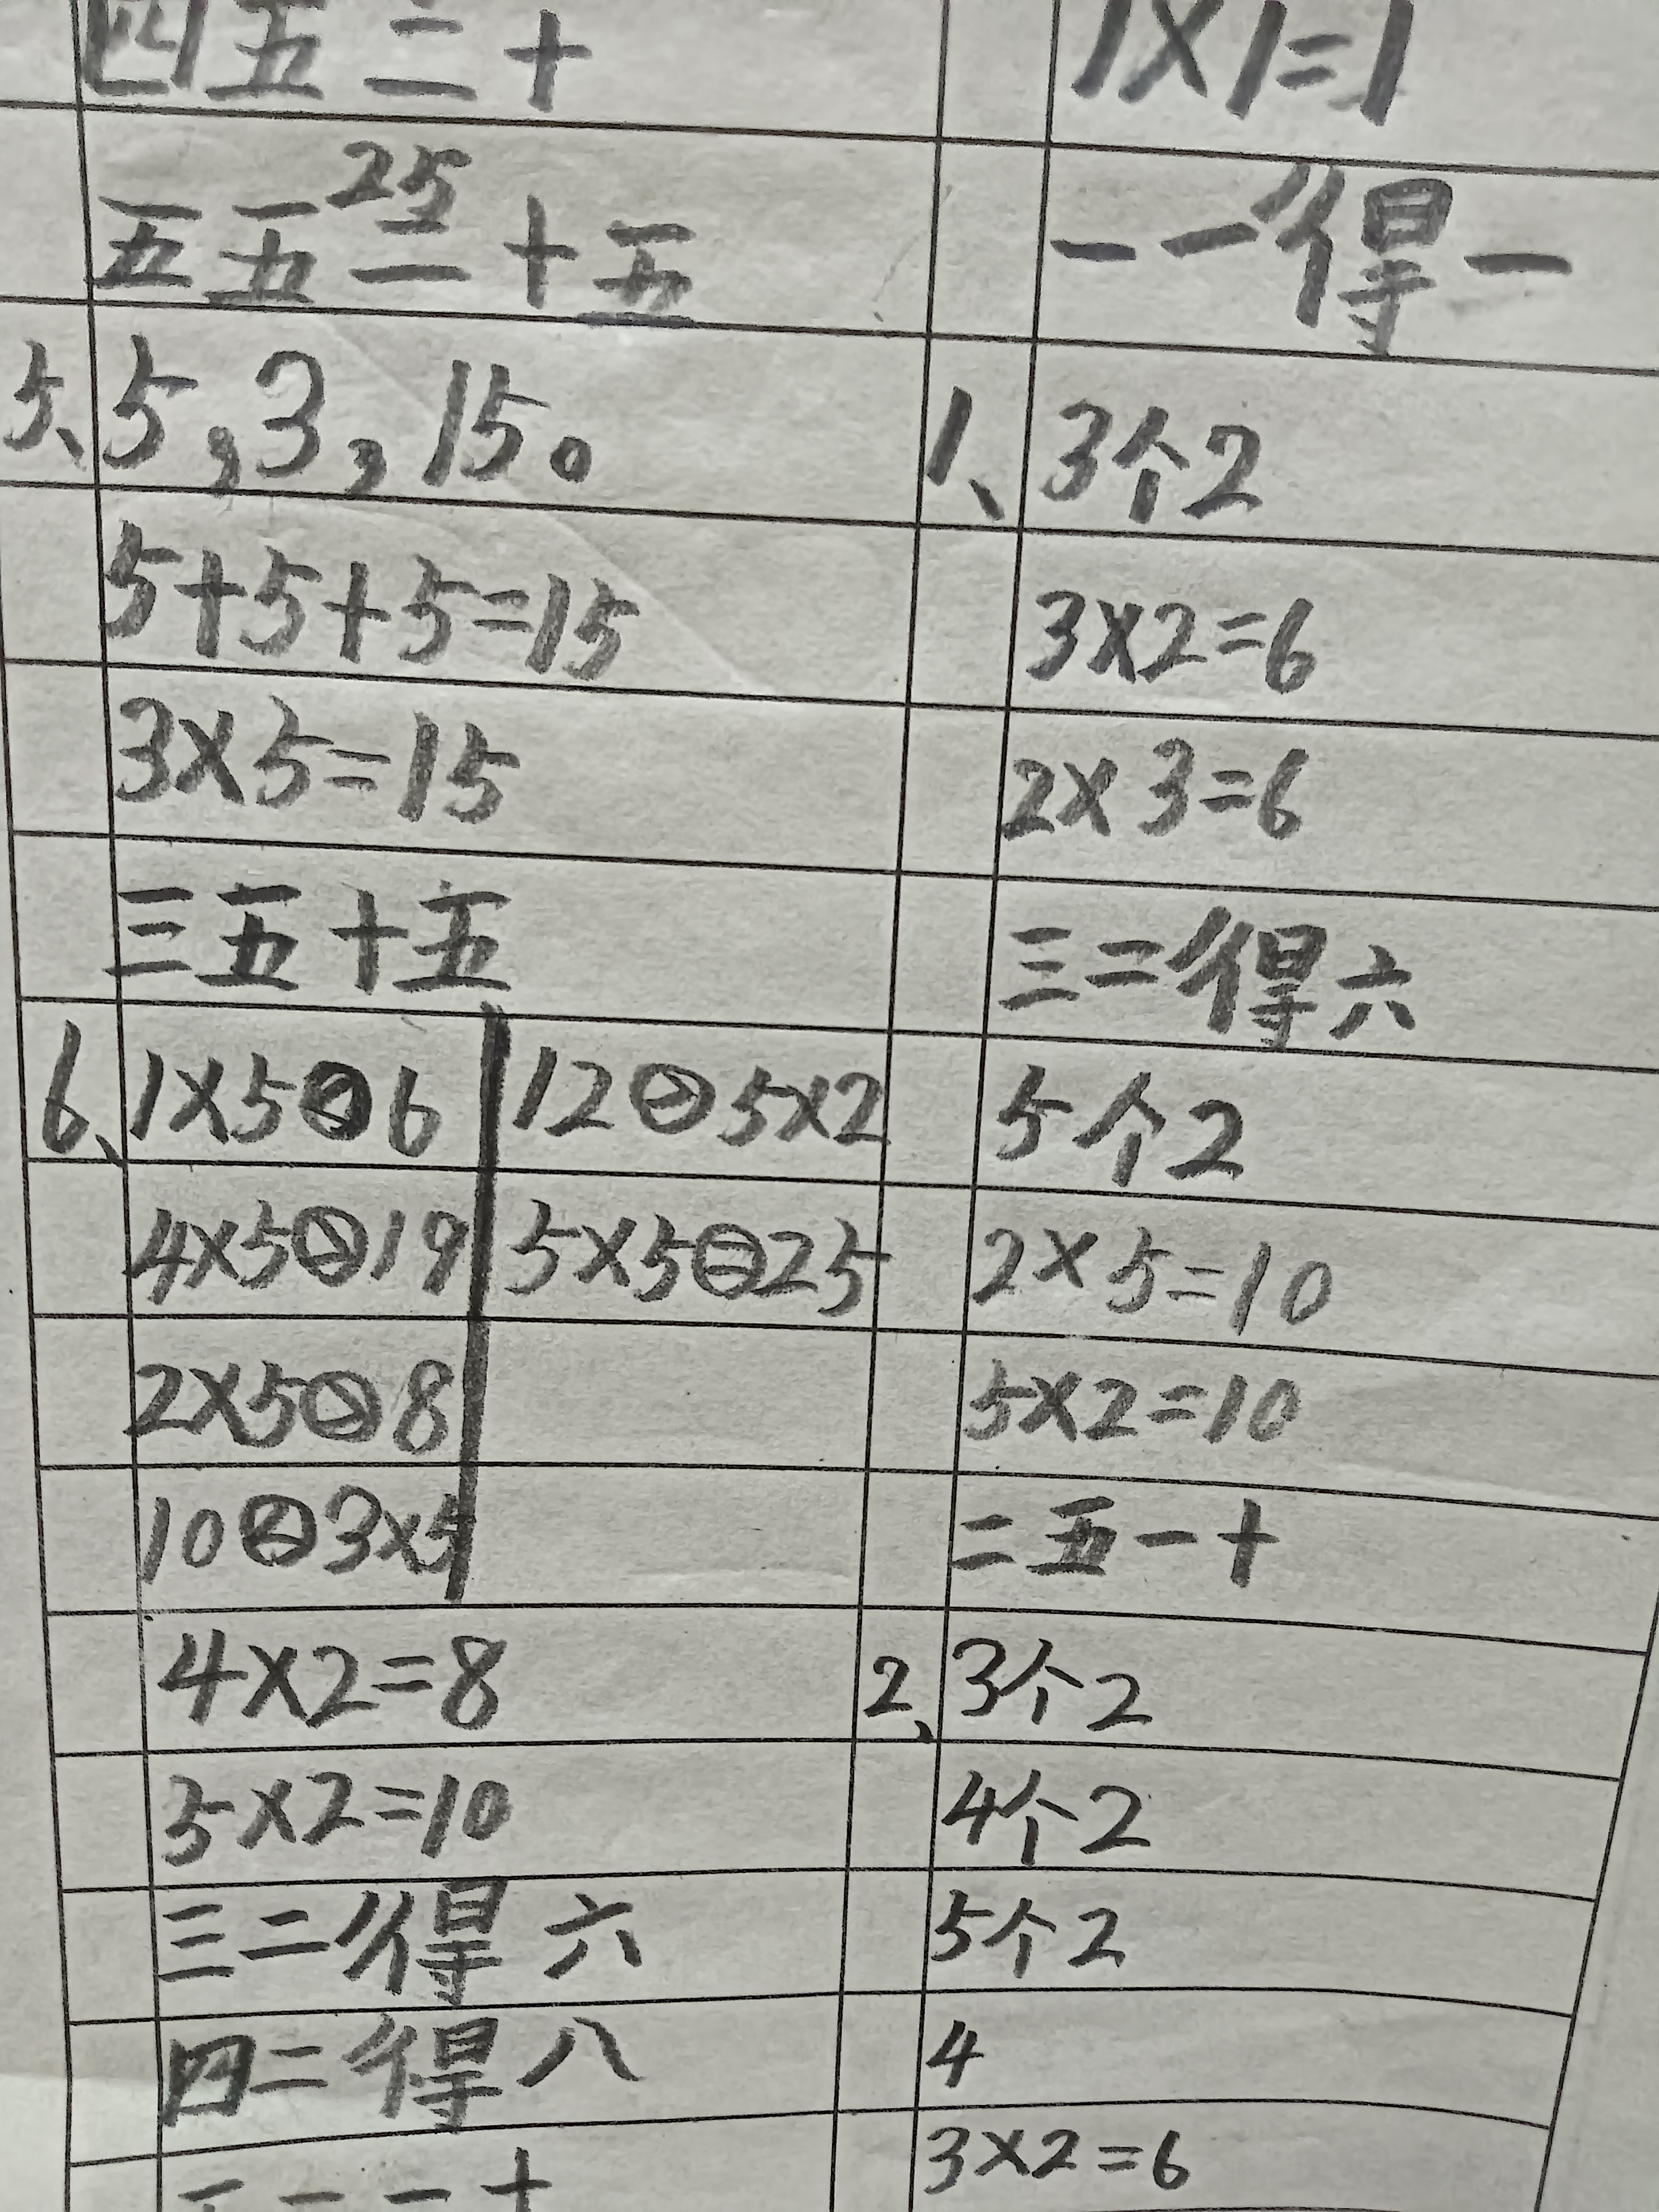 四五二十
25
五五二十五
5、5,3,15。
5+5+5=15
3×5=15
三五十五
6、1×5<6 12>5×2
4×5>19 5×5=25
2×5>8
10<3×5
4×2=8
5×2=10
三二得六
四二得八
1×1=1
一一得一
1、3个2
3×2=6
2×3=6
三二得六
5个2
2×5=10
5×2=10
二五一十
2、3个2
4个2
5个2
4
3×2=6